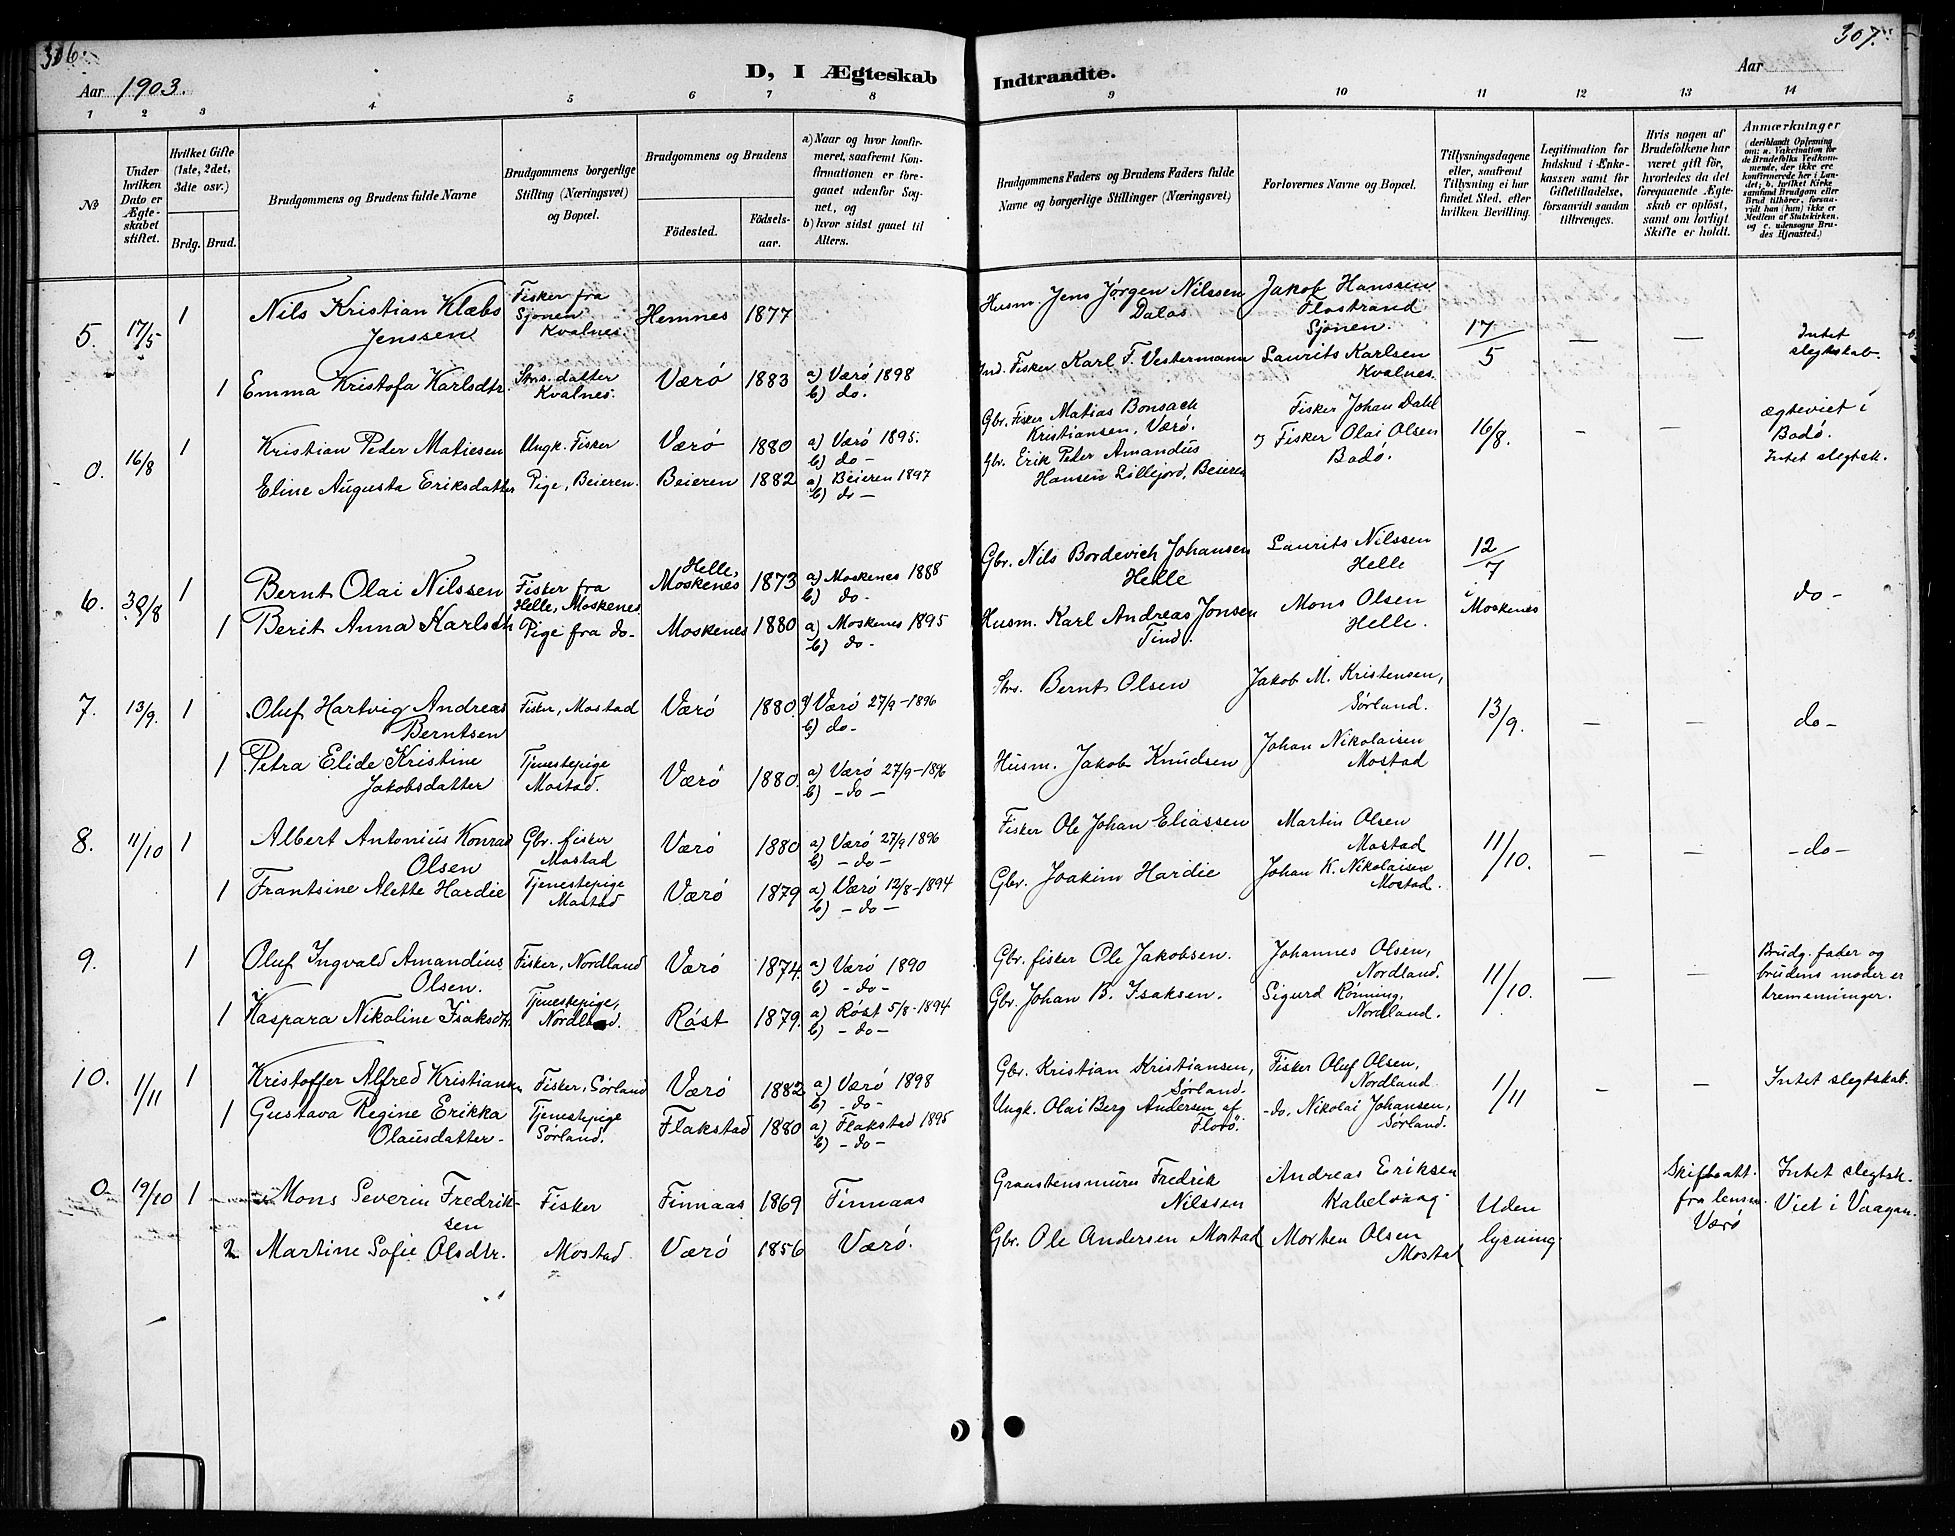 306.
307.
D, I Ægteskab Indtraadte.
Aar 1903.
Aar
1 2 3 4 5 6 7 8 9 10 11 12 13 14
No
Under hvilken Dato er Ægteskabet stiftet.
Hvilket Gifte (1ste, 2det, 3die osv.)
Brdg. Brud.
Brudgommens og Brudens fulde Navne
Brudgommens borgerlige Stilling (Næringsvei) og Bopæl.
Brudgommens og Brudens
Födested.
Födsels-aar.
a) Naar og hvor konfirmeret, saafremt Konfirmationen er foregaaet udenfor Sognet, og
b) hvor sidst gaaet til Alters.
Brudgommens Faders og Brudens Faders fulde Navne og borgerlige Stillinger (Næringsvei)
Forlovernes Navne og Bopæl.
Tillysningsdagene eller, saafremt Tillysning ei har fundet Sted, efter hvilken Bevilling.
Legitimation for Indskud i Enkekassen samt for Giftetilladelse, forsaavidt saadan tiltrænges.
Hvis nogen af Brudefolkene har været gift för, hvorledes da det foregaaende Ægteskab er oplöst, samt om lovligt Skifte er holdt.
Anmærkninger
(deriblandt Oplysning om: a. Vakcination for de Brudefolks Vedkommende, der ikke ere konfirmerede her i Landet; b. hvilket Kirkesamfund Brudgom eller Brud tilhörer, forsaavidt han (hun) ikke er Medlem af Statskirken, og c. udensogns Brudes Hjemsted.)
5. 17/5 1 Nils Kristian Klæbo Jenssen Fisker fra Sjonen Kvalnes Hemnes 1877 Husm. Jens Jørgen Nilssen Dalos Jakob Hanssen Flostrand Sjonen. 17/5 — — Intet slegtskab.
1 Emma Kristofa Karlsdtr. Strs. datter Kvalnes. Værö 1883 a) Værö 1898 b) do. Ind. Fisker Karl F. Vestermann Laurits Karlsen Kvalnes.
0. 16/8 1 Kristian Peder Matiesen Ungk. Fisker Værö 1880 a) Værö 1895. b) do- Gbr. Fisker Matias Bonsach Kristiansen, Værö. Fisker Johan Dahl 16/8. - - ægteviet i Bodö. Intet slegtsk.
Eline Augusta Eriksdatter Pige, Beieren. Beieren 1882 a) Beieren 1897 b) do- Gbr. Erik Peder Amandus Hansen Lillejord, Beieren og Fisker Olai Olsen Bodö.
6. 30/8 1 Bernt Olai Nilssen Fisker fra Helle, Moskenes Helle, Moskenes 1873 a) Moskenes 1888 b) do- Gbr. Nils Bordevich Johansen Helle Laurits Nilssen Helle 12/7 i Moskenes do-
1 Berit Anna Karlsdtr Pige fra do- Moskenes 1880 a) Moskenes 1895 b) do- Husm. Karl Andreas Jonsen Tind. Mons Olsen Helle.
7. 13/9. 1 Oluf Hartvig Andreas Berntsen Fisker, Mostad Værö 1880. a) Værö 27/9-1896 b) do- Strs. Bernt Olsen Jakob M. Kristensen, Sørland. 13/9. - - do-
1 Petra Elide Kristine Jakobsdatter Tjenestepige Mostad. Værö 1880. a) Værö 27/9-1896 b) -do- Husm. Jakob Knudsen Johan Nikolaisen Mostad
8. 11/10 1 Albert Antonius Konrad Olsen Gbr. fisker Mostad Værö 1880 a) Værö 27/9 1896 b) -do- Fisker Ole Johan Eliassen Martin Olsen Mostad 11/10. - - -do-
1 Frantsine Alette Hardie Tjenestepige Mostad Værö 1879 a) Værö 12/8-1894 b) -do- Gbr. Joakim Hardie Johan K. Nikolaisen Mostad.
9. 1 Oluf Ingvald Amandius Olsen. Fisker, Nordland Værö 1874. a) Værö 1890 b) -do- Gbr. fisker Ole Jakobsen. Johannes Olsen, Nordland. 11/10. — — Brudg. fader og brudens moder er tremenninger.
1 Kaspara Nikoline Isaksdtr. Tjenestepige, Nordland. Röst 1879. a) Röst 5/8-1894 b) -do- Gbr. Johan B. Isaksen. Sigurd Rönning, Nordland.
10. 1/11 1 Kristoffer Alfred Kristiansen Fisker, Sörland Værö 1882 a) Værö 1898 b) -do- Gbr. Kristian Kristiansen, Sørland. Fisker Oluf Olsen, Nordland 1/11 - - Intet slegtskab.
1 Gustava Regine Erikka Olausdatter- Tjenestepige Sørland. Flakstad 1880 a) Flakstad 1895 b) -do- Ungk. Olai Berg Andersen af Florö. -do. Nikolai Johansen, Sørland.
0- 19/10 1 Mons Severin Fredriksen Fisker Finnaas 1869 Finnaas Graastensmurer Fredrik Nilssen Andreas Eriksen Kabelvaag Uden lysning Skifteatt. fra lensm. Værö Intet slegtsk. Viet i Vaagan.
2 Martine Sofie Olsdtr. Mostad Værö 1856 Værö. Gbr. Ole Andersen Mostad Morten Olsen Mostad